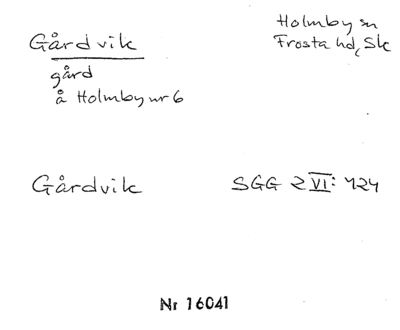 Gårdvik
Holmby sn
Frosta hd, Sk
gård
å Holmby nr 6
Gårdvik
SGG 2 VI: 424
Nr 16041